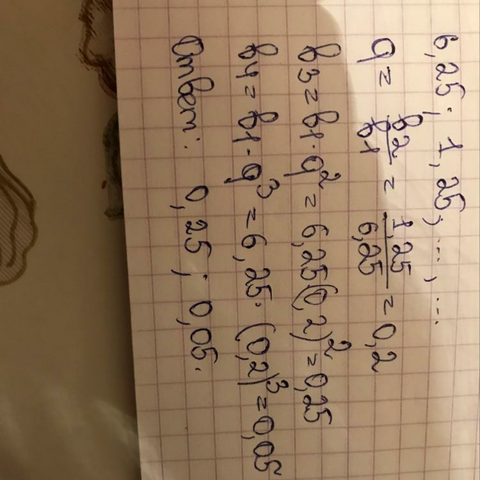 6,25; 1,25; ..., ...
q = b2/b1 = 1,25/6,25 = 0,2
b3 = b1·q² = 6,25(0,2)² = 0,25
b4 = b1·q³ = 6,25·(0,2)³ = 0,05
Ответ: 0,25; 0,05.